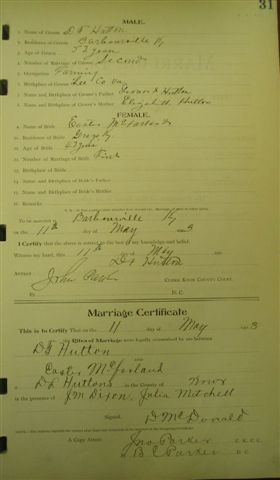 31
MALE.
1. Name of Groom D F Hutton
2. Residence of Groom Barbourville Ky
3. Age of Groom 52 years
4. Number of Marriage of Groom Second
5. Occupation Farming
6. Birthplace of Groom Lee Co Va
7. Name and Birthplace of Groom's Father Hutton
8. Name and Birthplace of Groom's Mother Elizabeth Hutton
FEMALE.
9. Name of Bride Easter McFarland
10. Residence of Bride Ky
11. Age of Bride
12. Number of Marriage of Bride First
13. Birthplace of Bride
14. Name and Birthplace of Bride's Father
15. Name and Birthplace of Bride's Mother
16. Remarks
To be married at Barbourville Ky
on the 11th day of May 3
I Certify that the above is correct to the best of my knowledge and belief.
Witness my hand, this 11th day of May
D F Hutton
Attest:
John Parker CLERK KNOX COUNTY COURT.
By D. C.
Marriage Certificate
This is to Certify That on the 11 day of May 3
the Rites of Marriage were legally solemnized by me between
D F Hutton
and
Easter McFarland
at D F Huttons in the County of Knox
in the presence of J M Dixon, Julia Mitchell
Signed, D McDonald
A Copy Attest: Jno Parker CKCC
B C Parker DC